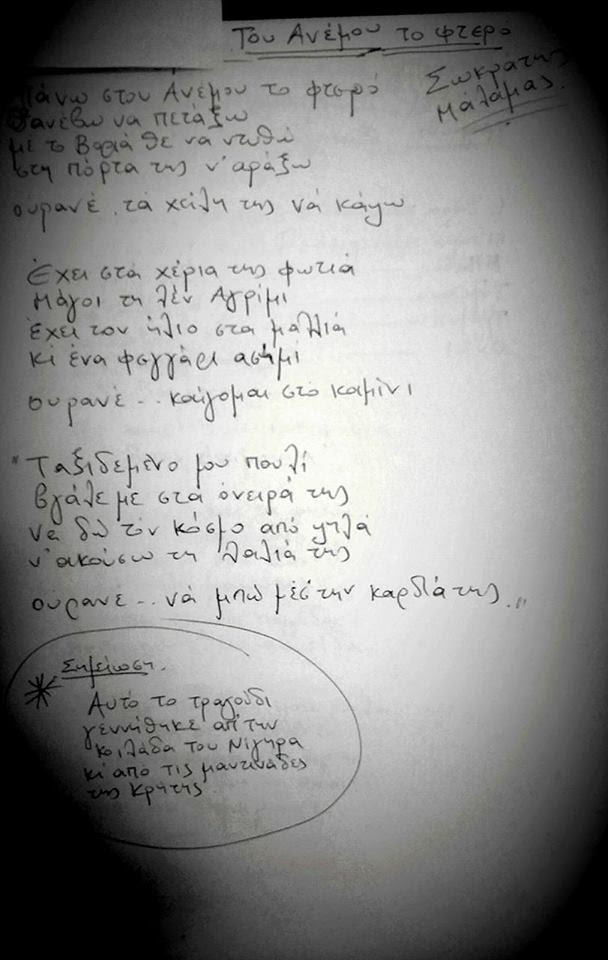 Του Ανέμου το φτερό
Σωκράτης
Μάλαμας.
Πάνω στου Ανέμου το φτερό
Θ'ανέβω να πετάξω
με το Βοριά θε να ντυθώ
στη πόρτα της ν'αράξω
ουρανέ, τα χείλη της νά κάψω
Έχει στά χέρια της φωτιά
Μάγοι τη λέν Αγρίμι
Έχει τον ήλιο στα μαλλιά
κι ένα φεγγάρι ασήμι
ουρανέ.. καίγομαι στό καμίνι
"Ταξιδεμένο μου πουλί
βγάλε με στά όνειρά της
να δώ τον κόσμο από ψηλά
ν'ακούσω τη λαλιά της
ουρανέ.. νά μπώ μέσ'την καρδιά της.."
Σημείωση.
* Αυτό το τραγούδι
γεννήθηκε απ'την
κοιλάδα του Νίγηρα
κι από τις μαντινάδες
της Κρήτης.